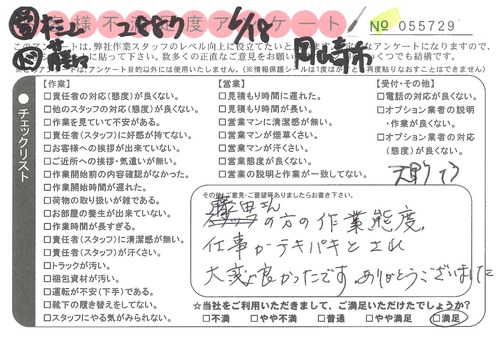 お客様不満足度アンケート № 055729
2887 6/18 岡山市
このアンケートは、弊社作業スタッフのレベル向上に役立てたいと
に貼って下さい。数多くの正直なご意見をお願い
くつでも結構です。
チェックリスト
【作業】
□責任者の対応(態度)が良くない。
□他のスタッフの対応(態度)が良くない。
□作業を見ていて不安がある。
□責任者(スタッフ)に好感が持てない。
□お客様への挨拶が出来ていない。
□ご近所への挨拶・気遣いが無い。
□作業開始前の内容確認がなかった。
□作業開始時間が遅れた。
□荷物の取り扱いが雑である。
□お部屋の養生が出来ていない。
□作業時間が長すぎる。
□責任者(スタッフ)に清潔感が無い。
□責任者(スタッフ)が汗くさい。
□トラックが汚い。
□梱包資材が汚い。
□運転が不安(下手)である。
□靴下の履き替えをしてない。
□スタッフにやる気がみられない。
【営業】
□見積もり時間に遅れた。
□見積もり時間が長い。
□営業マンに清潔感が無い。
□営業マンが煙草くさい。
□営業マンが汗くさい。
□営業態度が良くない。
□営業の説明と作業が一致してない。
【受付・その他】
□電話の対応が良くない。
□オプション業者の説明
・作業が良くない。
□オプション業者の対応
(態度)が良くない。
その他ご意見・ご要望等ありましたらお書き下さい。
藤田さん
の方の作業態度
仕事がテキパキとされ
大変良かったです ありがとうございました
★当社をご利用いただきまして、ご満足いただけたでしょうか?
□不満 □やや不満 □普通 □やや満足 □満足